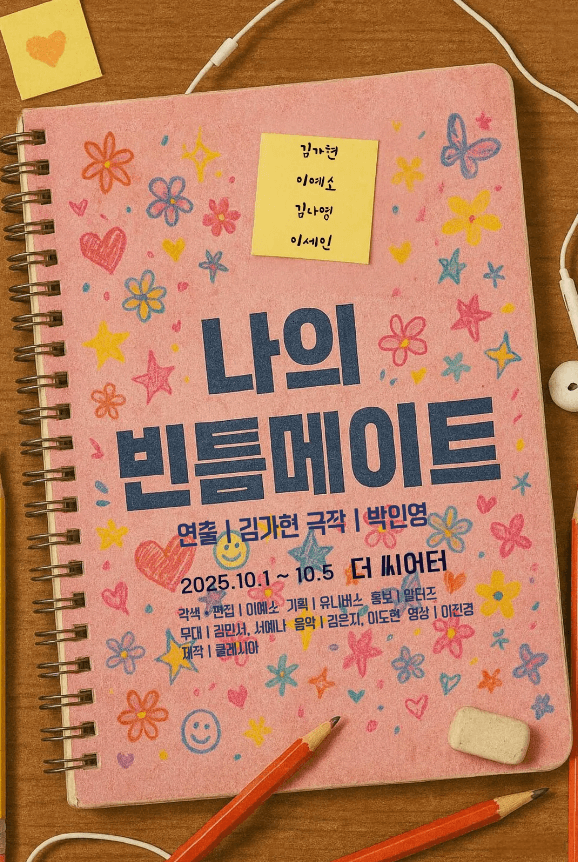 김가현
이예소
김나영
이세인
나의
빈틈메이트
연출 | 김가현 극작 | 박인영
2025.10.1 ~ 10.5 더 씨어터
각색·편집 | 이예소 기획 | 유니버스 홍보 | 말터즈
무대 | 김민서, 서예나 음악 | 김은지, 이도현 영상 | 이진경
제작 | 클레시아